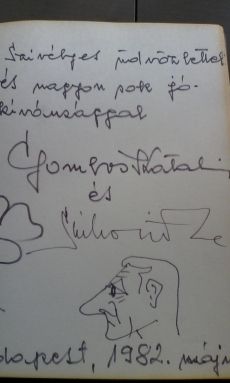 Szívélyes üdvözlettel
és nagyon sok jó-
kívánsággal
Gombos Katalin
és
Sinkovits
dapest, 1982. máju